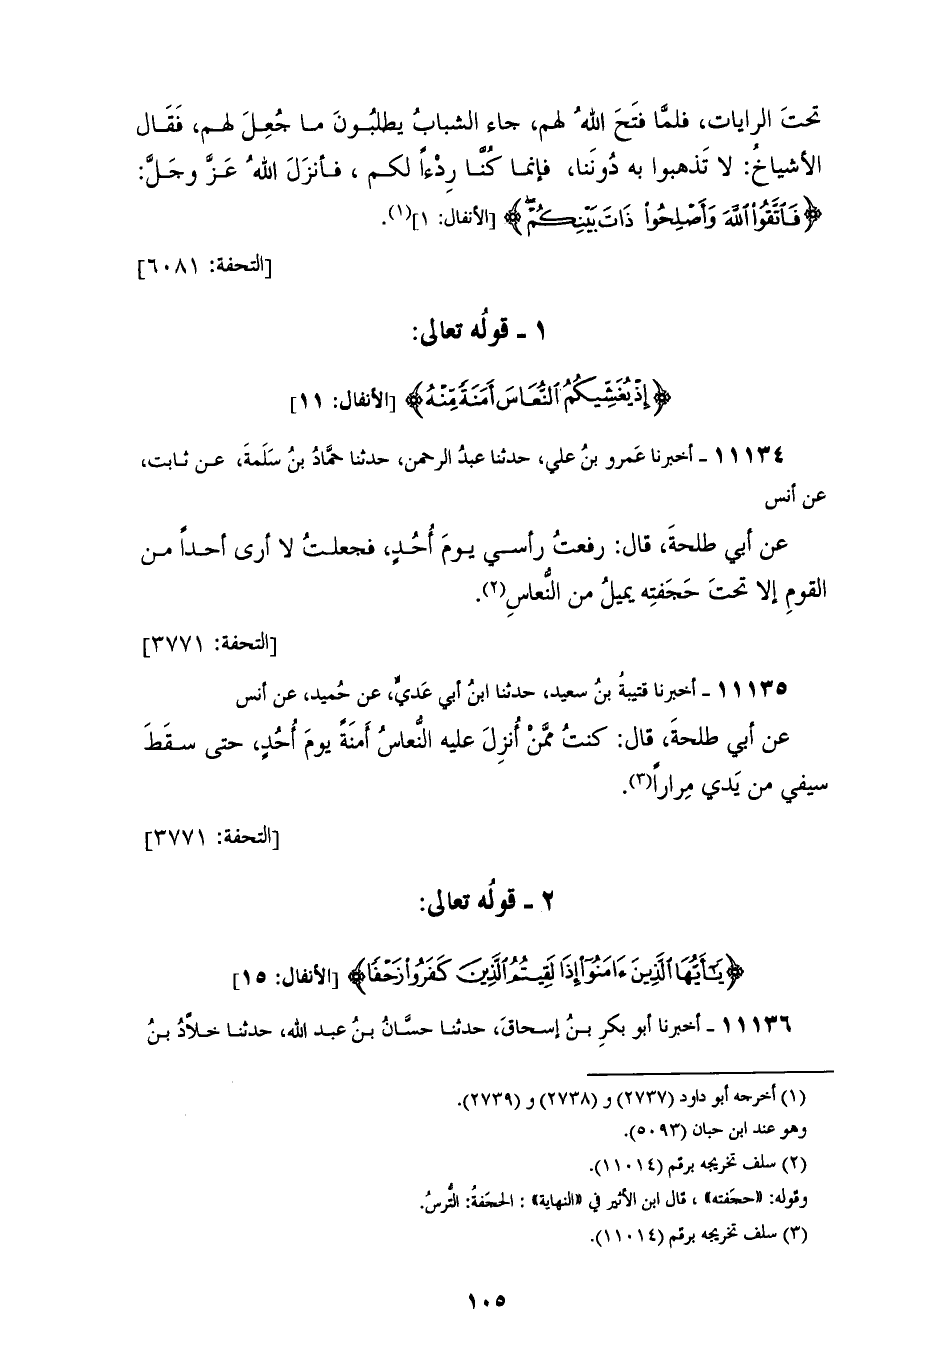 تحتَ الرايات، فلمَّا فتَحَ اللهُ لهم، جاء الشبابُ يطلبُونَ ما جُعِلَ لهم، فَقَال
الأشياخُ: لا تَذهبوا به دُونَنا، فإنما كُنَّا رِدْءاً لكم ، فأنزَلَ اللهُ عَزَّ وجَلَّ:
﴿فَٱتَّقُوا۟ ٱللَّهَ وَأَصْلِحُوا۟ ذَاتَ بَيْنِكُمْ ۖ﴾ [الأنفال: ١](١).
[التحفة: ٦٠٨١]
١ ـ قولُه تعالى:
﴿إِذْ يُغَشِّيكُمُ ٱلنُّعَاسَ أَمَنَةً مِّنْهُ﴾ [الأنفال: ١١]
١١١٣٤ ـ أخبرنا عَمرو بنُ علي، حدثنا عبدُ الرحمن، حدثنا حمَّادُ بنُ سَلَمةَ، عن ثابت،
عن أنس
عن أبي طلحةَ، قال: رفعتُ رأسي يومَ أُحُدٍ، فجعلتُ لا أرى أحداً من
القومِ إلا تحتَ حَجَفتِه يميلُ من النُّعاسِ(٢).
[التحفة: ٣٧٧١]
١١١٣٥ ـ أخبرنا قتيبةُ بنُ سعيد، حدثنا ابنُ أبي عَديٍّ، عن حُميد، عن أنس
عن أبي طلحةَ، قال: كنتُ ممَّنْ أُنزِلَ عليه النُّعاسُ أَمنَةً يومَ أُحُدٍ، حتى سقَطَ
سيفي من يَدي مِراراً(٣).
[التحفة: ٣٧٧١]
٢ ـ قولُه تعالى:
﴿يَٰٓأَيُّهَا ٱلَّذِينَ ءَامَنُوٓا۟ إِذَا لَقِيتُمُ ٱلَّذِينَ كَفَرُوا۟ زَحْفًا﴾ [الأنفال: ١٥]
١١١٣٦ ـ أخبرنا أبو بكرِ بنُ إسحاقَ، حدثنا حسَّانُ بنُ عبد الله، حدثنا خلاَّدُ بنُ
(١) أخرجه أبو داود (٢٧٣٧) و (٢٧٣٨) و (٢٧٣٩).
وهو عند ابن حبان (٥٠٩٣).
(٢) سلف تخريجه برقم (١١٠١٤).
وقوله: «حجَفته» ، قال ابن الأثير في «النهاية» : الحجَفةُ: التُّرسُ.
(٣) سلف تخريجه برقم (١١٠١٤).
١٠٥